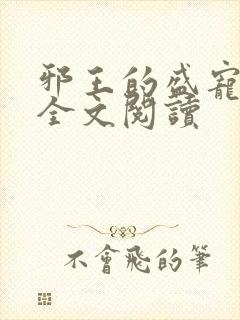 邪王的盛寵
全文閱讀
不會飛的筆